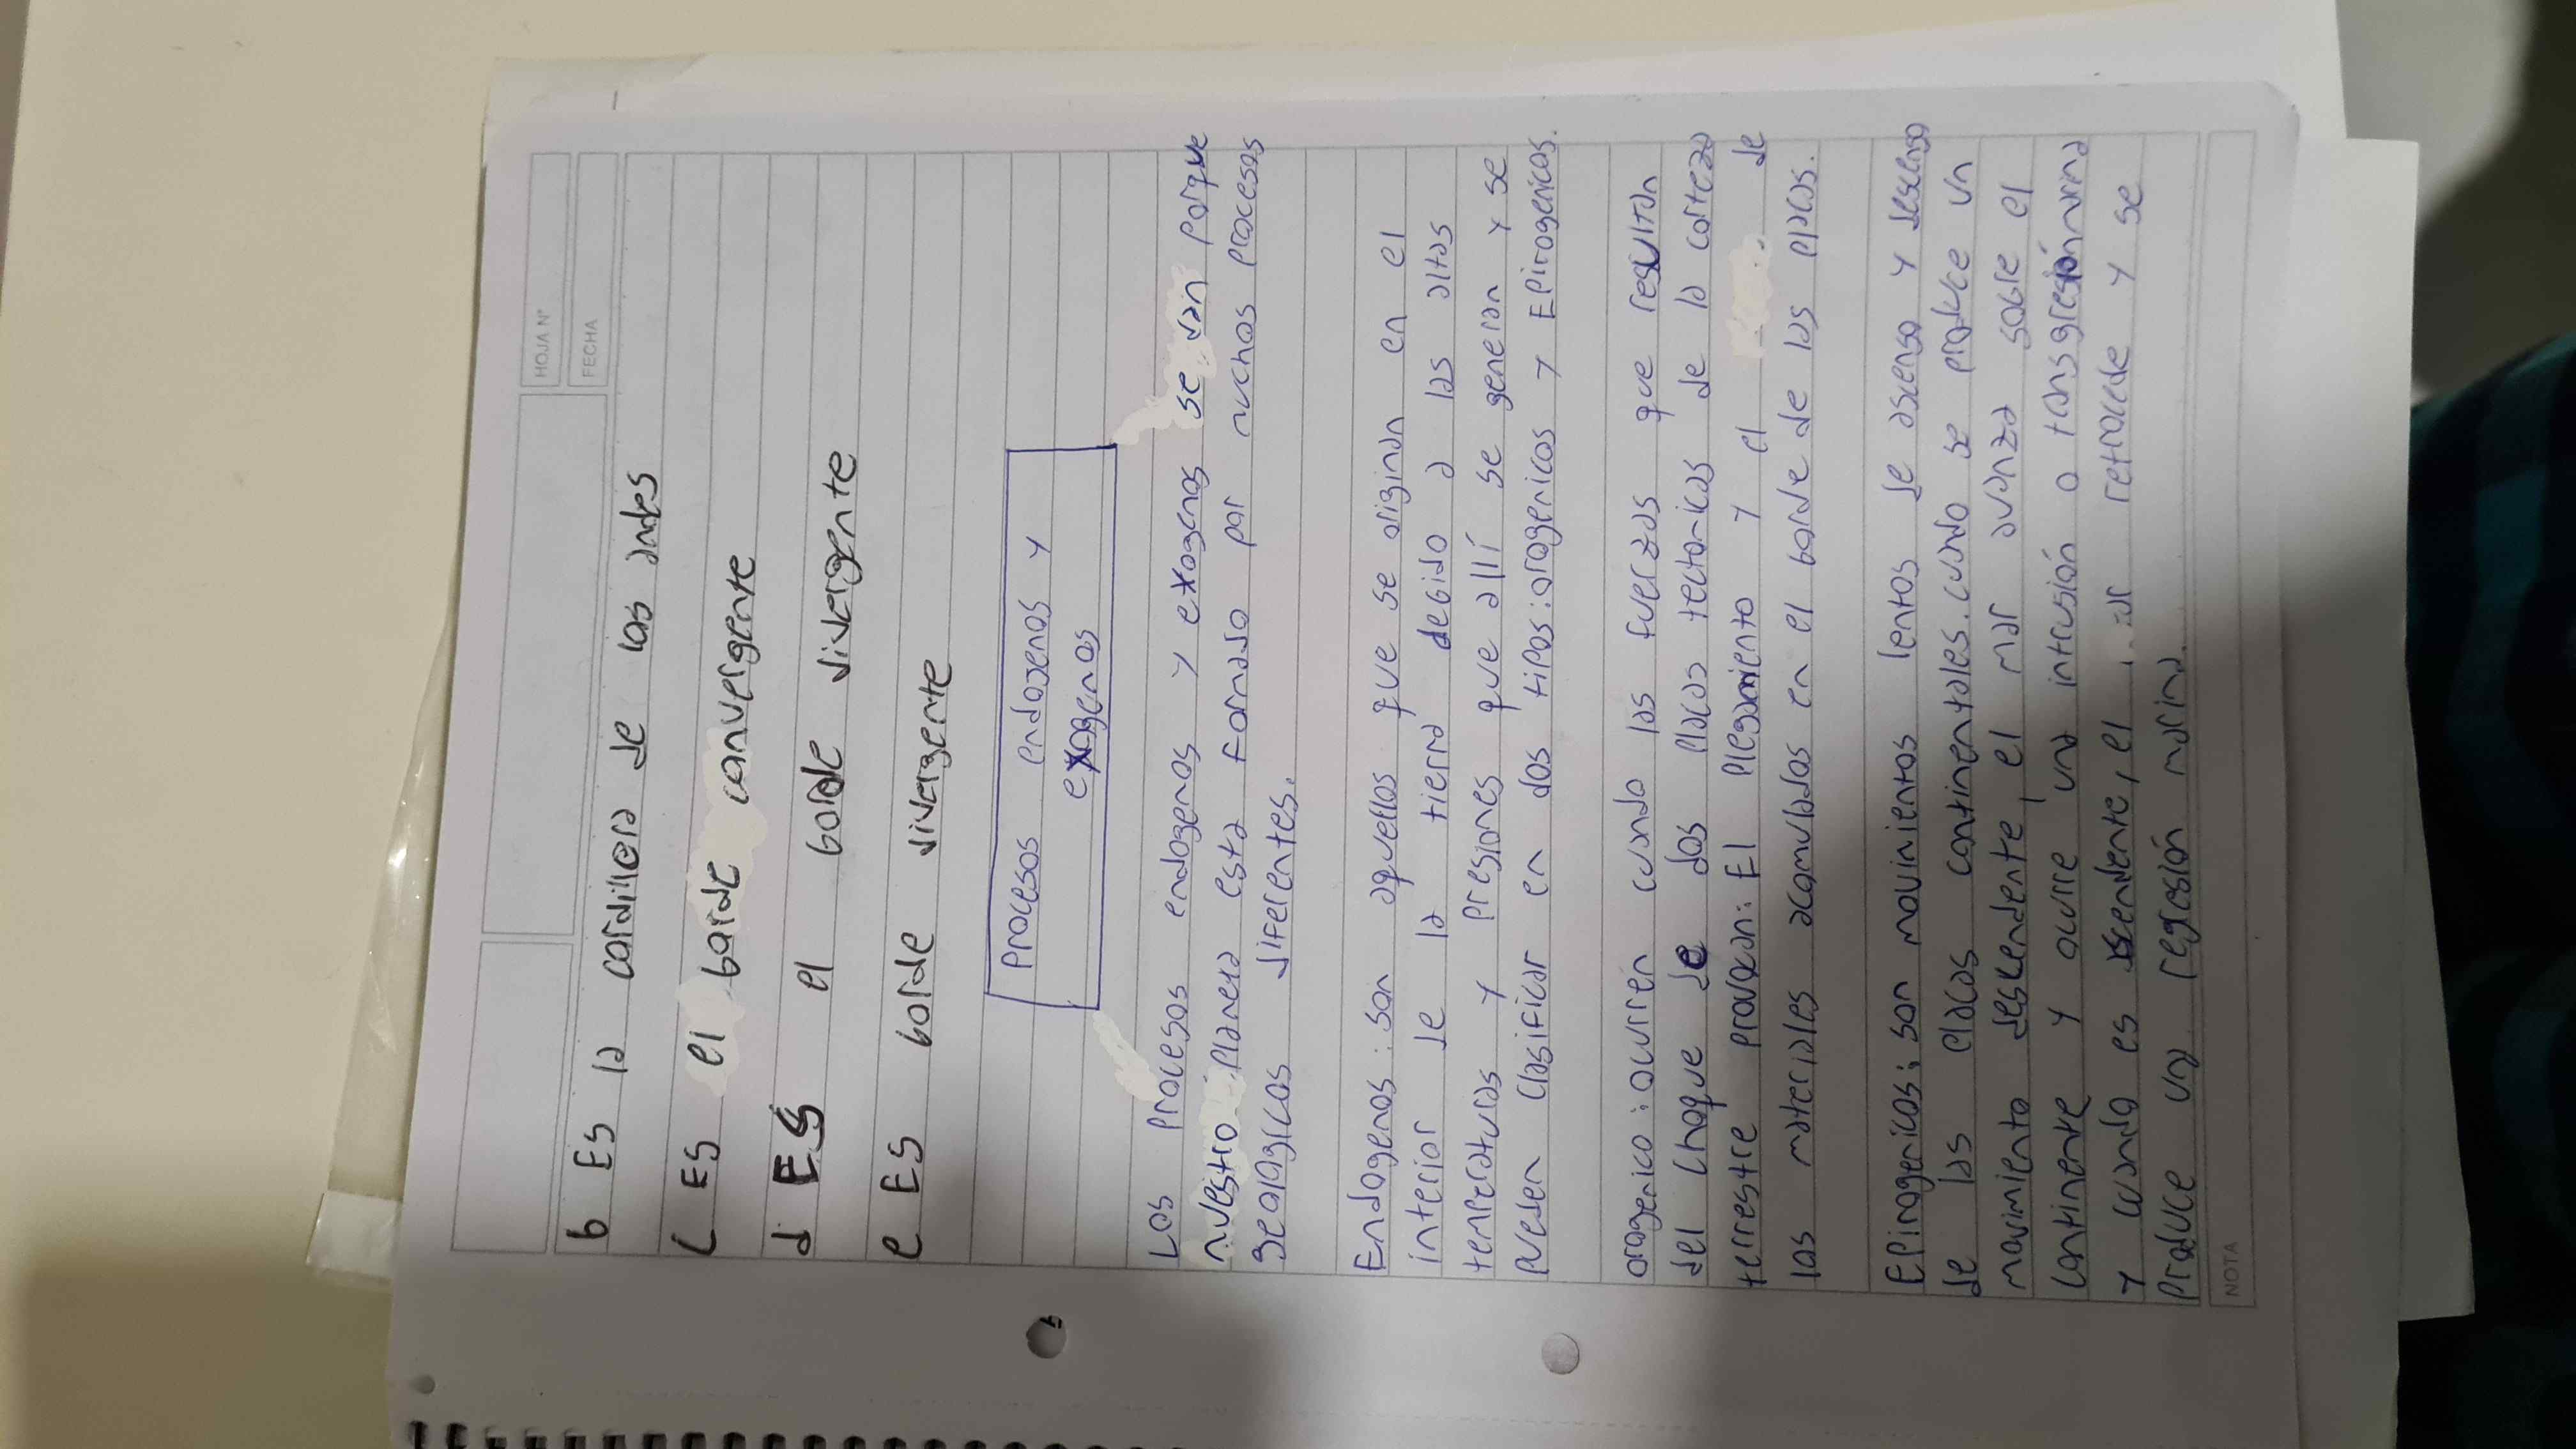 HOJA Nº
FECHA
b Es la cordillera de los andes
c Es el borde convergente
d Es el borde divergente
e Es borde divergente
Procesos endogenos y
exogenos
Los procesos endogenos y exogenos se van porque
nuestro planeta esta formado por muchos procesos
geologicos diferentes.
Endogenos: son aquellos que se originan en el
interior de la tierra debido a las altas
temperaturas y presiones que allí se generan y se
pueden clasificar en dos tipos: orogenicos y Epirogenicos.
orogenico: ocurren cuando las fuerzas que resultan
del choque de dos placas tectonicas de la corteza
terrestre provocan: El plegamiento y el de
los materiales acomulados en el borde de las placas.
Epirogenicos: son movimientos lentos de ascenso y descenso
de las placas continentales. cundo se produce un
movimiento descendente, el mar avanza sobre el
continente y ocurre una intrusión o transgresión marina
y cundo es asendente, el mar retrocede y se
produce una regresión marina.
NOTA